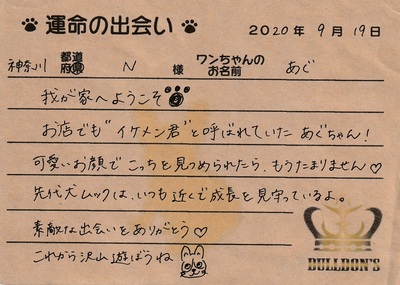 運命の出会い 2020年 9月 19日
神奈川 都道府県 N 様 ワンちゃんのお名前 あぐ
我が家へようこそ
お店でも"イケメン君"と呼ばれていた あぐちゃん!
可愛いお顔で こっちを見つめられたら、もうたまりません♡
先代犬ムックは、いつも近くで成長を見守っているよ。
素敵な出会いをありがとう♡
これから沢山遊ぼうね
BULLDON'S